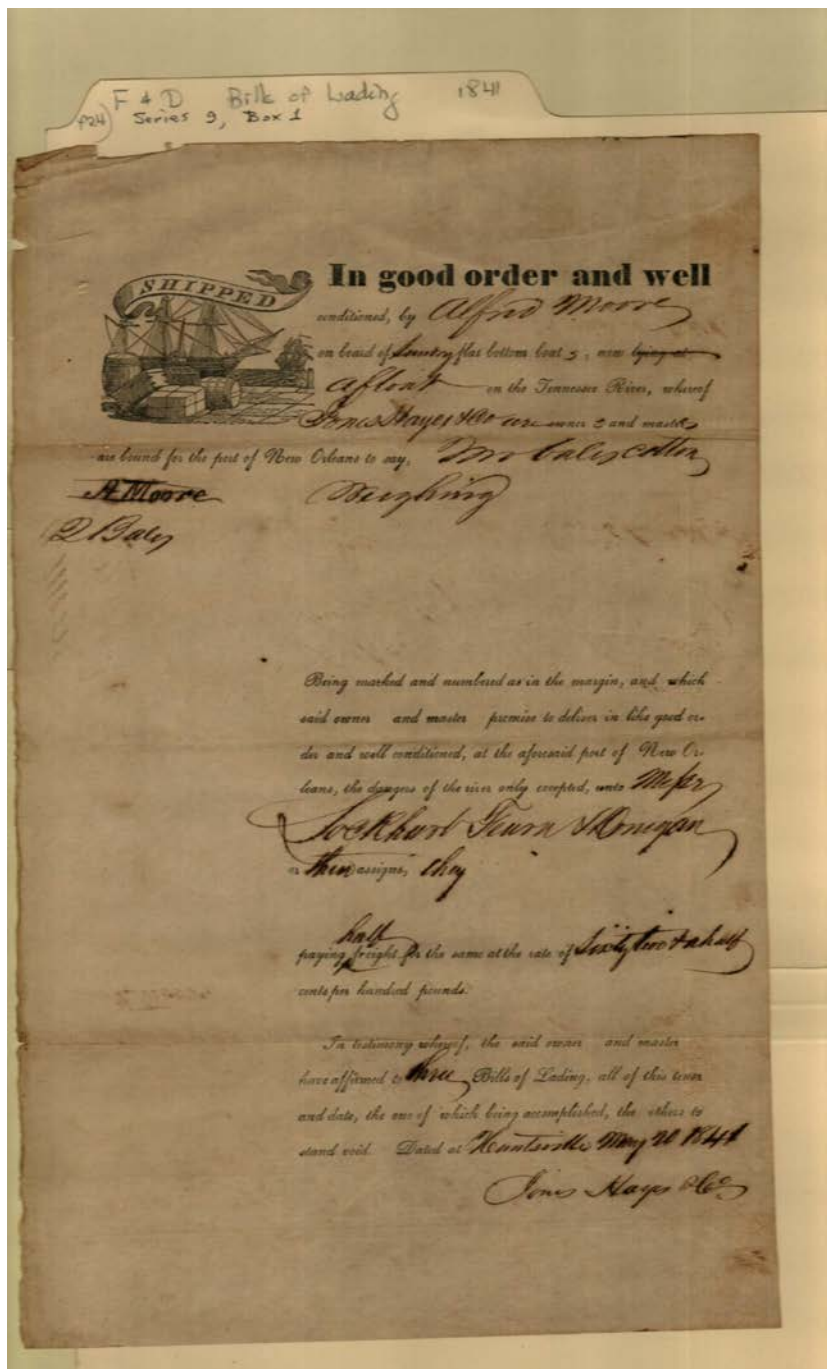 F & D Bills of Lading 1841
f24) Series 9, Box 1
SHIPPED
In good order and well
conditioned, by Alfred Moore
on board of Sundry flat bottom boat s, now lying at
Afloat on the Tennessee River, whereof
Jones Hayes & Co are owner s and master
are bound for the port of New Orleans to say, Two bales cotton
A Moore Weighing
2 Bales
Being marked and numbered as in the margin, and which
said owner and master promise to deliver in like good or-
der and well conditioned, at the aforesaid port of New Or-
leans, the dangers of the river only excepted, unto Messr
Lockhart Fearn & Donegan
or their assigns, they
half
paying freight for the same at the rate of Sixty two & a half
cents per hundred pounds.
In testimony whereof, the said owner and master
have affirmed to three Bills of Lading, all of this tenor
and date, the one of which being accomplished, the others to
stand void. Dated at Huntsville May 20 1841
Jones Hayes & Co